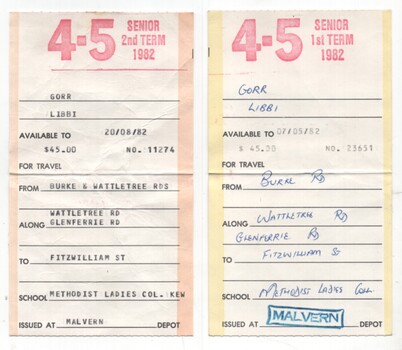 4-5 SENIOR
2nd TERM
1982
GORR
LIBBI
AVAILABLE TO 20/08/82
$45.00 NO. 11274
FOR TRAVEL
FROM BURKE & WATTLETREE RDS
WATTLETREE RD
ALONG GLENFERRIE RD
TO FITZWILLIAM ST
SCHOOL METHODIST LADIES COL. KEW
ISSUED AT MALVERN DEPOT
4-5 SENIOR
1st TERM
1982
GORR
LIBBI
AVAILABLE TO 07/05/82
$ 45.00 NO. 23651
FOR TRAVEL
FROM BURKE RD
ALONG WATTLETREE RD
GLENFERRIE RD
TO FITZWILLIAM ST
SCHOOL METHODIST LADIES COLL.
ISSUED AT MALVERN DEPOT